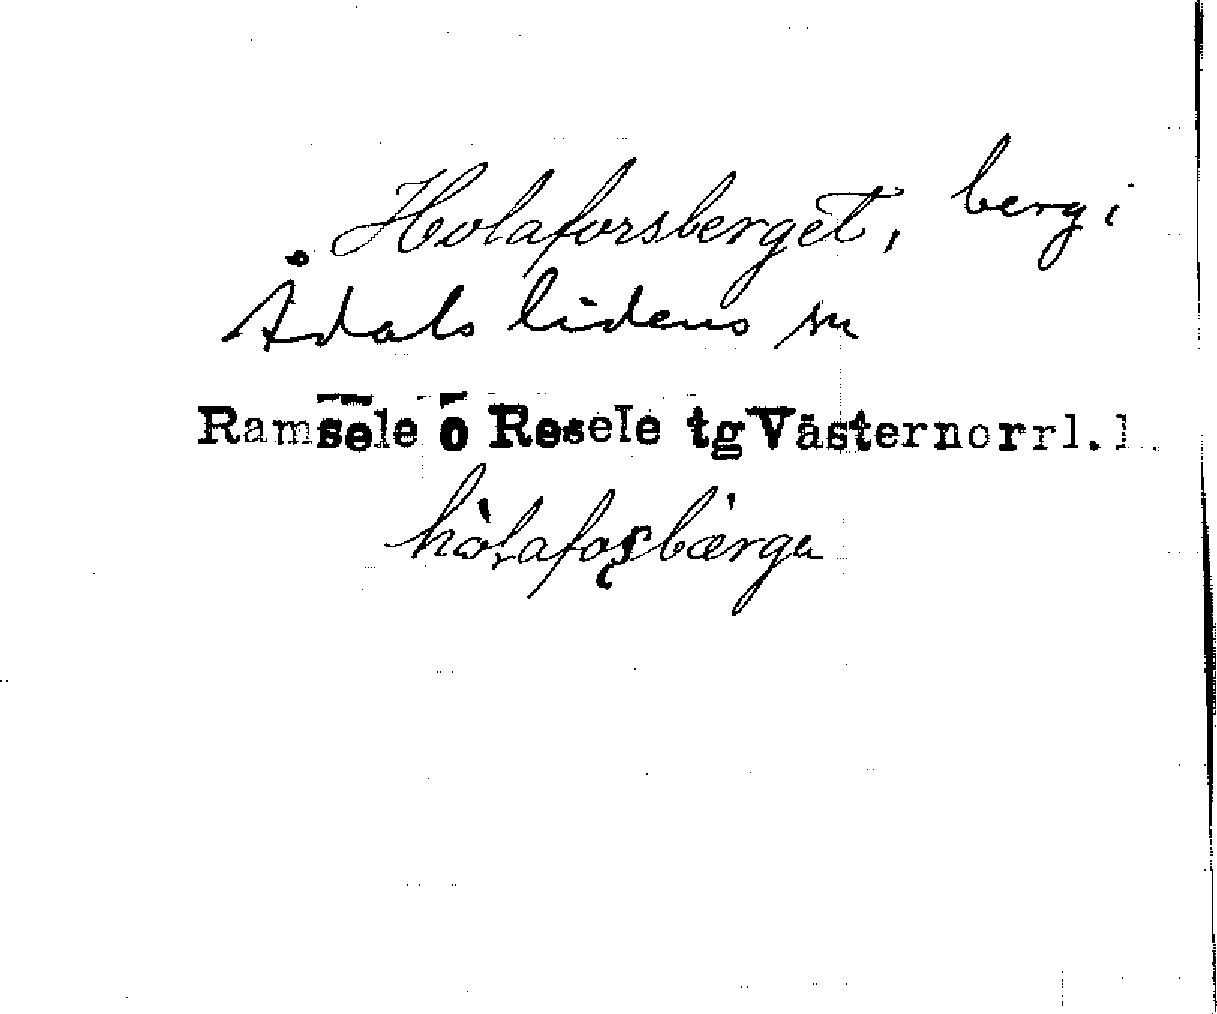 Holaforsberget, berg i
Ådals lidens sn
Ramsele o Resele tg Västernorrl. l.
hòlafosbærge